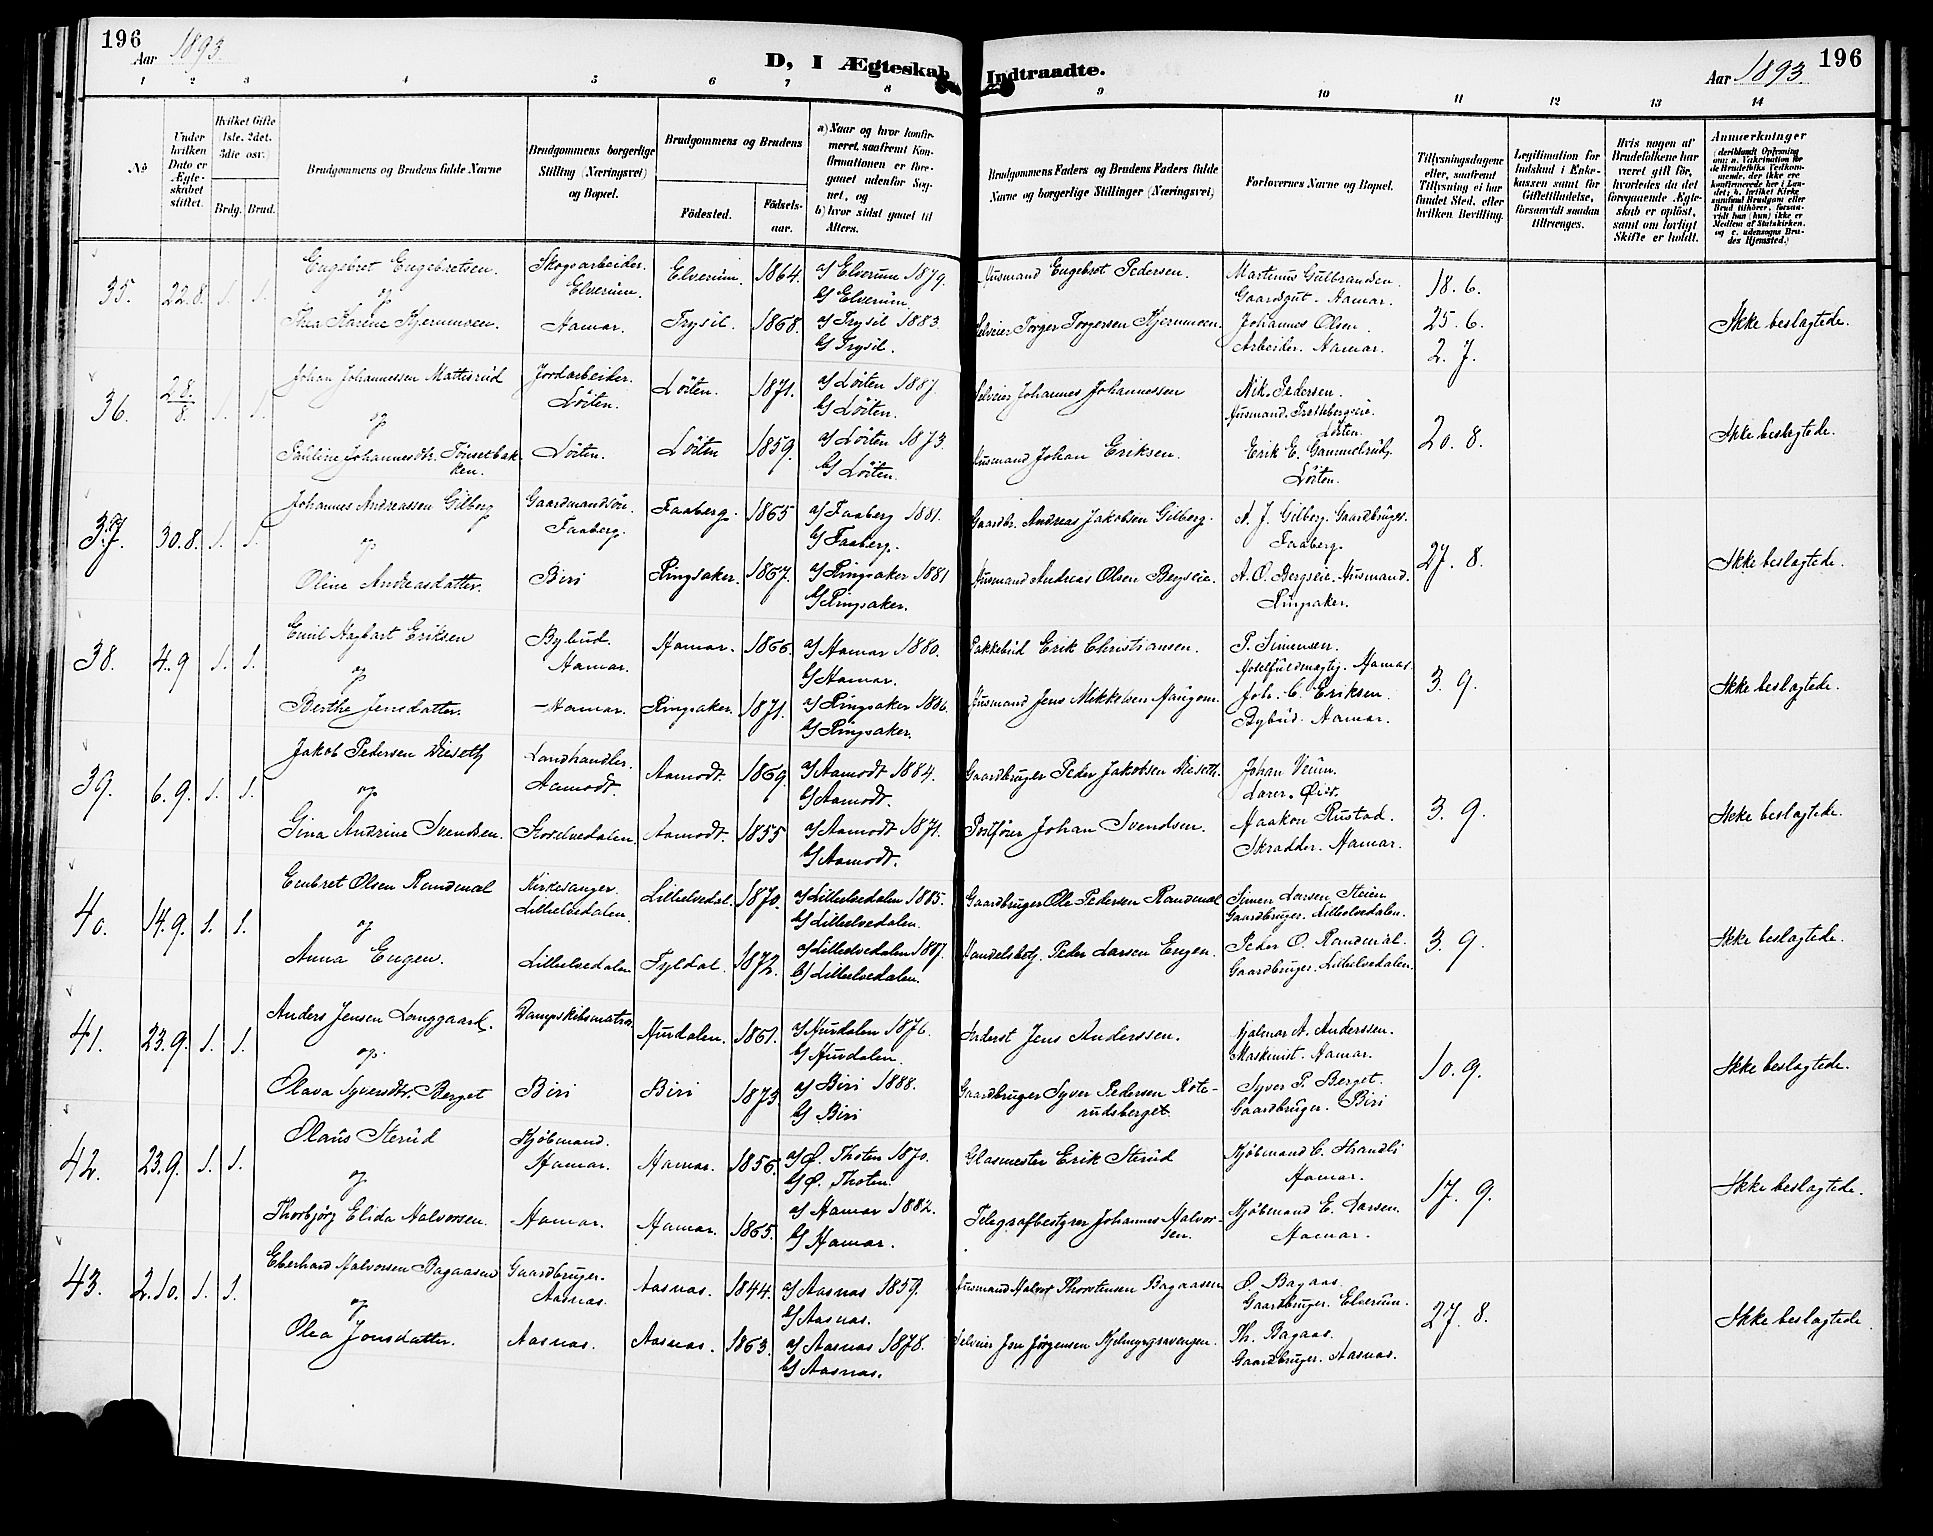 196
Aar 1893.
D, I Ægteskab Indtraadte.
Aar 1893.
196
1 2 3 4 5 6 7 8 9 10 11 12 13 14
No
Under hvilken Dato er Ægteskabet stiftet.
Hvilket Gifte 1ste. 2det. 3die osv.)
Brdg. Brud.
Brudgommens og Brudens fulde Navne
Brudgommens borgerlige Stilling (Næringsvei) og Bopæl.
Brudgommens og Brudens
Fødested. Fødsels-aar.
a) Naar og hvor konfirmeret, saafremt Konfirmationen er foregaaet udenfor Sognet, og
b) hvor sidst gaaet til Alters.
Brudgommens Faders og Brudens Faders fulde Navne og borgerlige Stillinger (Næringsvei)
Forlovernes Navne og Bopæl.
Tillysningsdagene eller, saafremt Tillysning ei har fundet Sted, efter hvilken Bevilling.
Legitimation for Indskud i Enkekassen samt for Giftetilladelse, forsaavidt saadan tiltrænges.
Hvis nogen af Brudefolkene har været gift før, hvorledes da det foregaaende Ægteskab er opløst, samt om lovligt Skifte er holdt.
Anmærkninger
35. 22.8. 1. 1. Engebret Engebretsen. Skogsarbeider. Elverum. Elverum. 1864. a) Elverum 1879. b) Elverum Husmand Engebret Pedersen. Martinus Gulbrandsen. Gaardsgut. Hamar. 18. 6.
og
Thea Karine Kjernmoen. Hamar. Trysil. 1868. a) Trysil 1883. b) Trysil. Selveier Torger Torgersen Kjernmoen. Johannes Olsen. Arbeider. Hamar. 25. 6. 2. 7. Ikke beslagtede.
36. 28/8. 1. 1. Johan Johannessen Mattisrud Jordarbeider. Löiten. Löiten. 1871. a) Löiten 1887 b) Löiten. Selveier Johannes Johannessen Nik. Pedersen. Husmand. Löiten.
og
Pauline Johannesdtr. Tönsetbakken. Löiten. Löiten 1859. a) Löiten 1873. b) Löiten. Husmand Johan Eriksen. Erik E. Gammelsrud, Löiten. 20. 8. Ikke beslagtede.
37. 30.8. 1. 1. Johannes Andreassen Gilberg Gaardmandssön. Faaberg. Faaberg. 1865 a) Faaberg 1881. b) Faaberg. Gaardbr. Andreas Jakobsen Gilberg. A. J. Gilberg. Gaardbruger. Faaberg.
og
Oline Andreasdatter. Biri Ringsaker. 1867. a) Ringsaker 1881 b) Ringsaker. Husmand Andreas Olsen Bergseie. A. O. Bergseie. Husmand. Ringsaker. 27. 8. Ikke beslagtede.
38. 4.9 1. 1. Emil Hagbart Eriksen Bybud. Hamar. Hamar. 1866. a) Hamar 1880. b) Hamar. Pakkebud Erik Christiansen. P. Simensen. Hotelfuldmægtig. Hamar.
og
Berthe Jensdatter. - Hamar. Ringsaker. 1871. a) Ringsaker 1886. b) Ringsaker. Husmand Jens Mikkelsen Haugom. Joh. C. Eriksen. Bybud. Hamar. 3. 9. Ikke beslagtede.
39. 6.9. 1. 1. Jakob Pedersen Dieseth Landhandler. Aamodt. Aamodt. 1869. a) Aamodt 1884. b) Aamodt. Gaardbruger Peder Jakobsen Dieseth. Johan Veum. Lærer.
og
Gina Andrine Svendsen. Storelvedalen. Aamodt. 1855 a) Aamodt 1871. b) Aamodt. Postförer Johan Svendsen. Haakon Rustad. Skrædder. Hamar. 3. 9. Ikke beslagtede.
40. 14.9. 1. 1. Embret Olsen Randmæl Kirkesanger. Lilleelvedalen. Lilleelvedal. 1870. a) Lilleelvedalen 1885. b) Lilleelvedalen. Gaardbruger Ole Pedersen Randmæl Simen Larsen Steien Gaardbruger. Lilleelvedalen.
og
Anna Eugen. Lilleelvedalen Tyldal. 1872. a) Lilleelvedalen 1887. b) Lilleelvedalen. Handelsbetj. Peder Larsen Eugen. Peder O. Randmæl. Gaardbruger. Lilleelvedalen. 3. 9. Ikke beslagtede.
41. 23.9. 1. 1. Anders Jensen Langgaard. Dampskibsmatros Hurdalen. 1861. a) Hurdalen 1876. b) Hurdalen. Inderst Jens Anderssen. Hjalmar A. Anderssen. Maskinist. Hamar.
og
Olava Syversdtr. Berget Biri Biri 1873. a) Biri 1888. b) Biri Gaardbruger Syver Pedersen Roterudsberget. Syver P. Berget. Gaardbruger. Biri 10. 9. Ikke beslagtede.
42. 23.9. 1. 1. Olaus Sterud Kjöbmand. Hamar. Hamar. 1856. a) Ø. Thoten 1870. b) Ø. Thoten. Glasmester Erik Sterud Kjöbmand C. Strandli Hamar.
og
Thorbjörg Elida Halvorsen. Hamar. Hamar. 1865. a) Hamar 1882. b) Hamar. Telegrafbestyrer Johannes Halvorsen. Kjöbmand E. Larsen. Hamar. 17. 9. Ikke beslagtede.
43. 2.10. 1. 1. Eberhard Halvorsen Bagaasen Gaardbruger. Aasnæs. Aasnæs. 1844. a) Aasnæs 1859. b) Aasnæs. Husmand Halvor Thorstensen Bagaasen O. Bagaas. Gaardbruger. Elverum.
og
Olea Jonsdatter. Aasnæs. Aasnæs. 1863. a) Aasnæs 1878. b) Aasnæs. Selveier Jon Jørgensen Th. Bagaas. Gaardbruger. Aasnæs. 27. 8. Ikke beslagtede